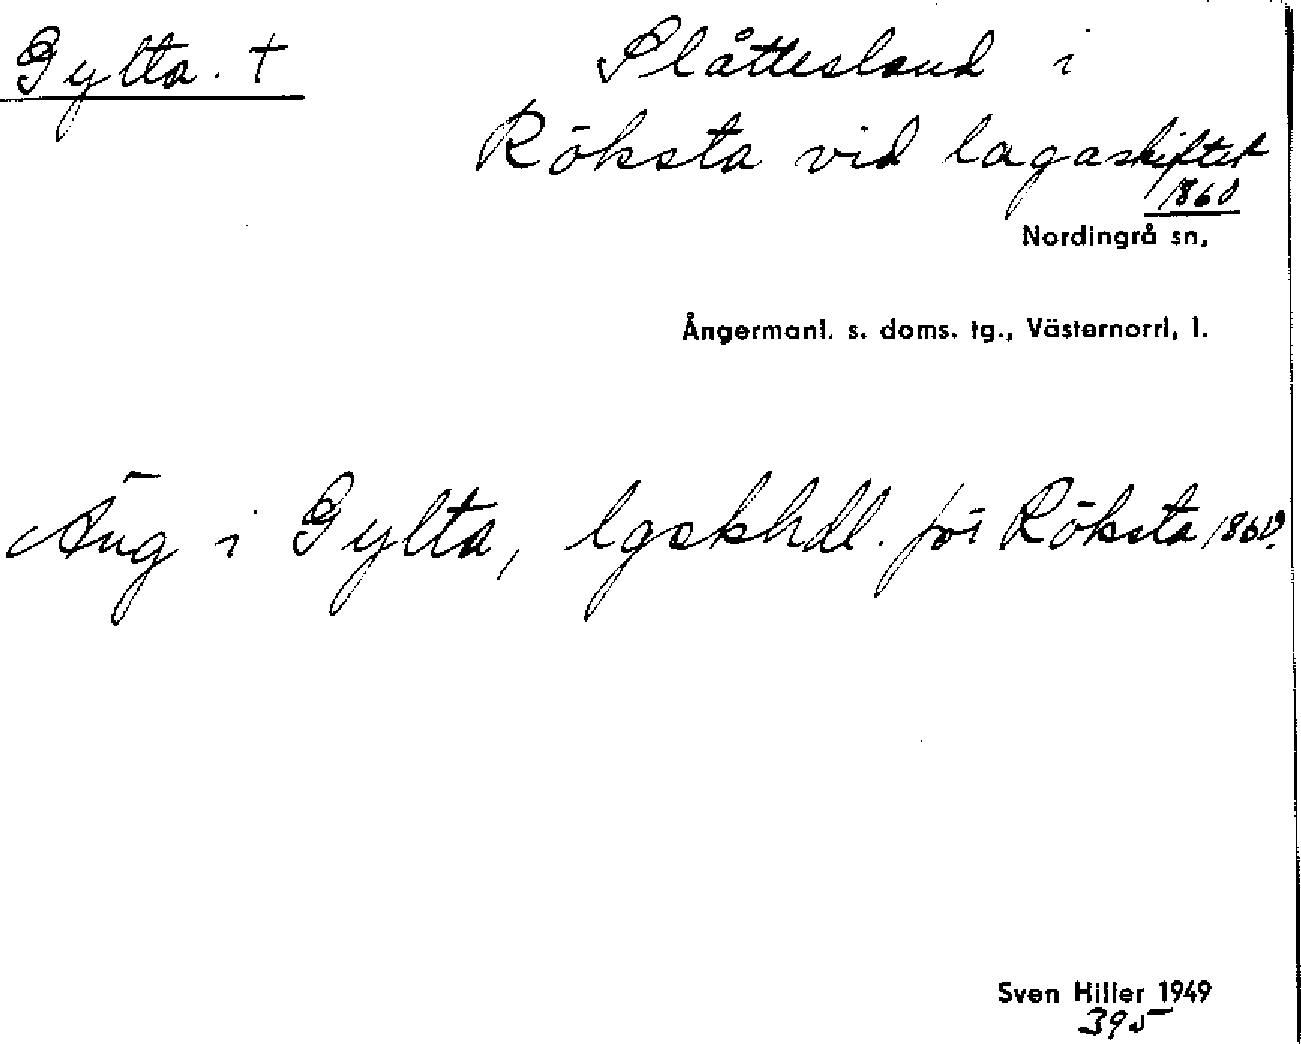 Gylta. †
Slåttesland i
Röksta vid lagaskiftet
1860
Nordingrå sn,
Ångermanl. s. doms. tg., Västernorrl, l.
Äng i Gylta, lgskhdl. för Röksta 1860.
Sven Hiller 1949
395